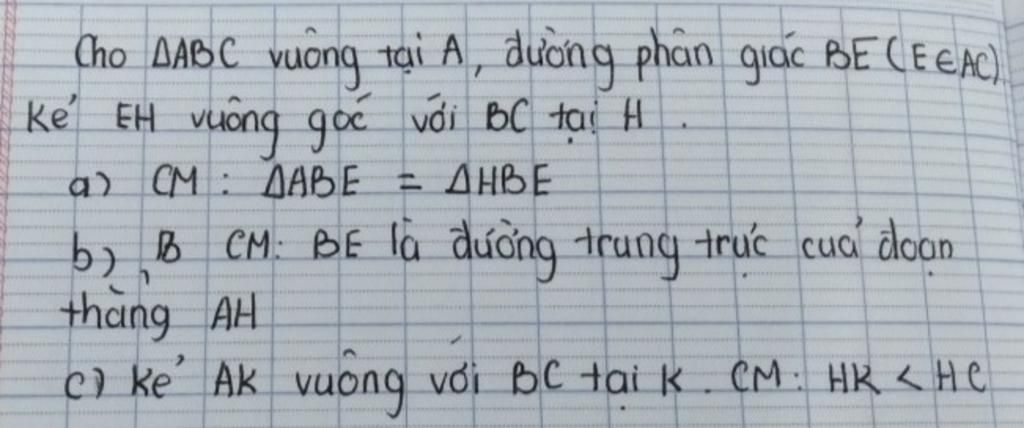 Cho ΔABC vuông tại A, đường phân giác BE (E∈AC)
Kẻ EH vuông góc với BC tại H.
a) CM: ΔABE = ΔHBE
b) B CM: BE là đường trung trực của đoạn
thẳng AH
c) Kẻ AK vuông với BC tại K. CM: HK < HC